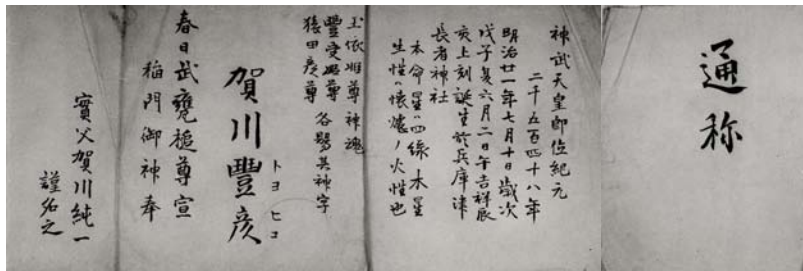 通称
神武天皇即位紀元
二千五百四十八年
明治廿一年七月十日歳次
戊子夏六月二日午吉祥辰
亥上刻誕生於兵庫津
長者神社
本命星ハ四緑木星
生性ハ懐爐ノ火性也
玉依姫尊神魂
豐受姫尊
猿田彦尊 各賜其神字
賀川豐彦
トヨヒコ
春日武甕槌尊宣
稲門御神奉
實父賀川純一
謹名之